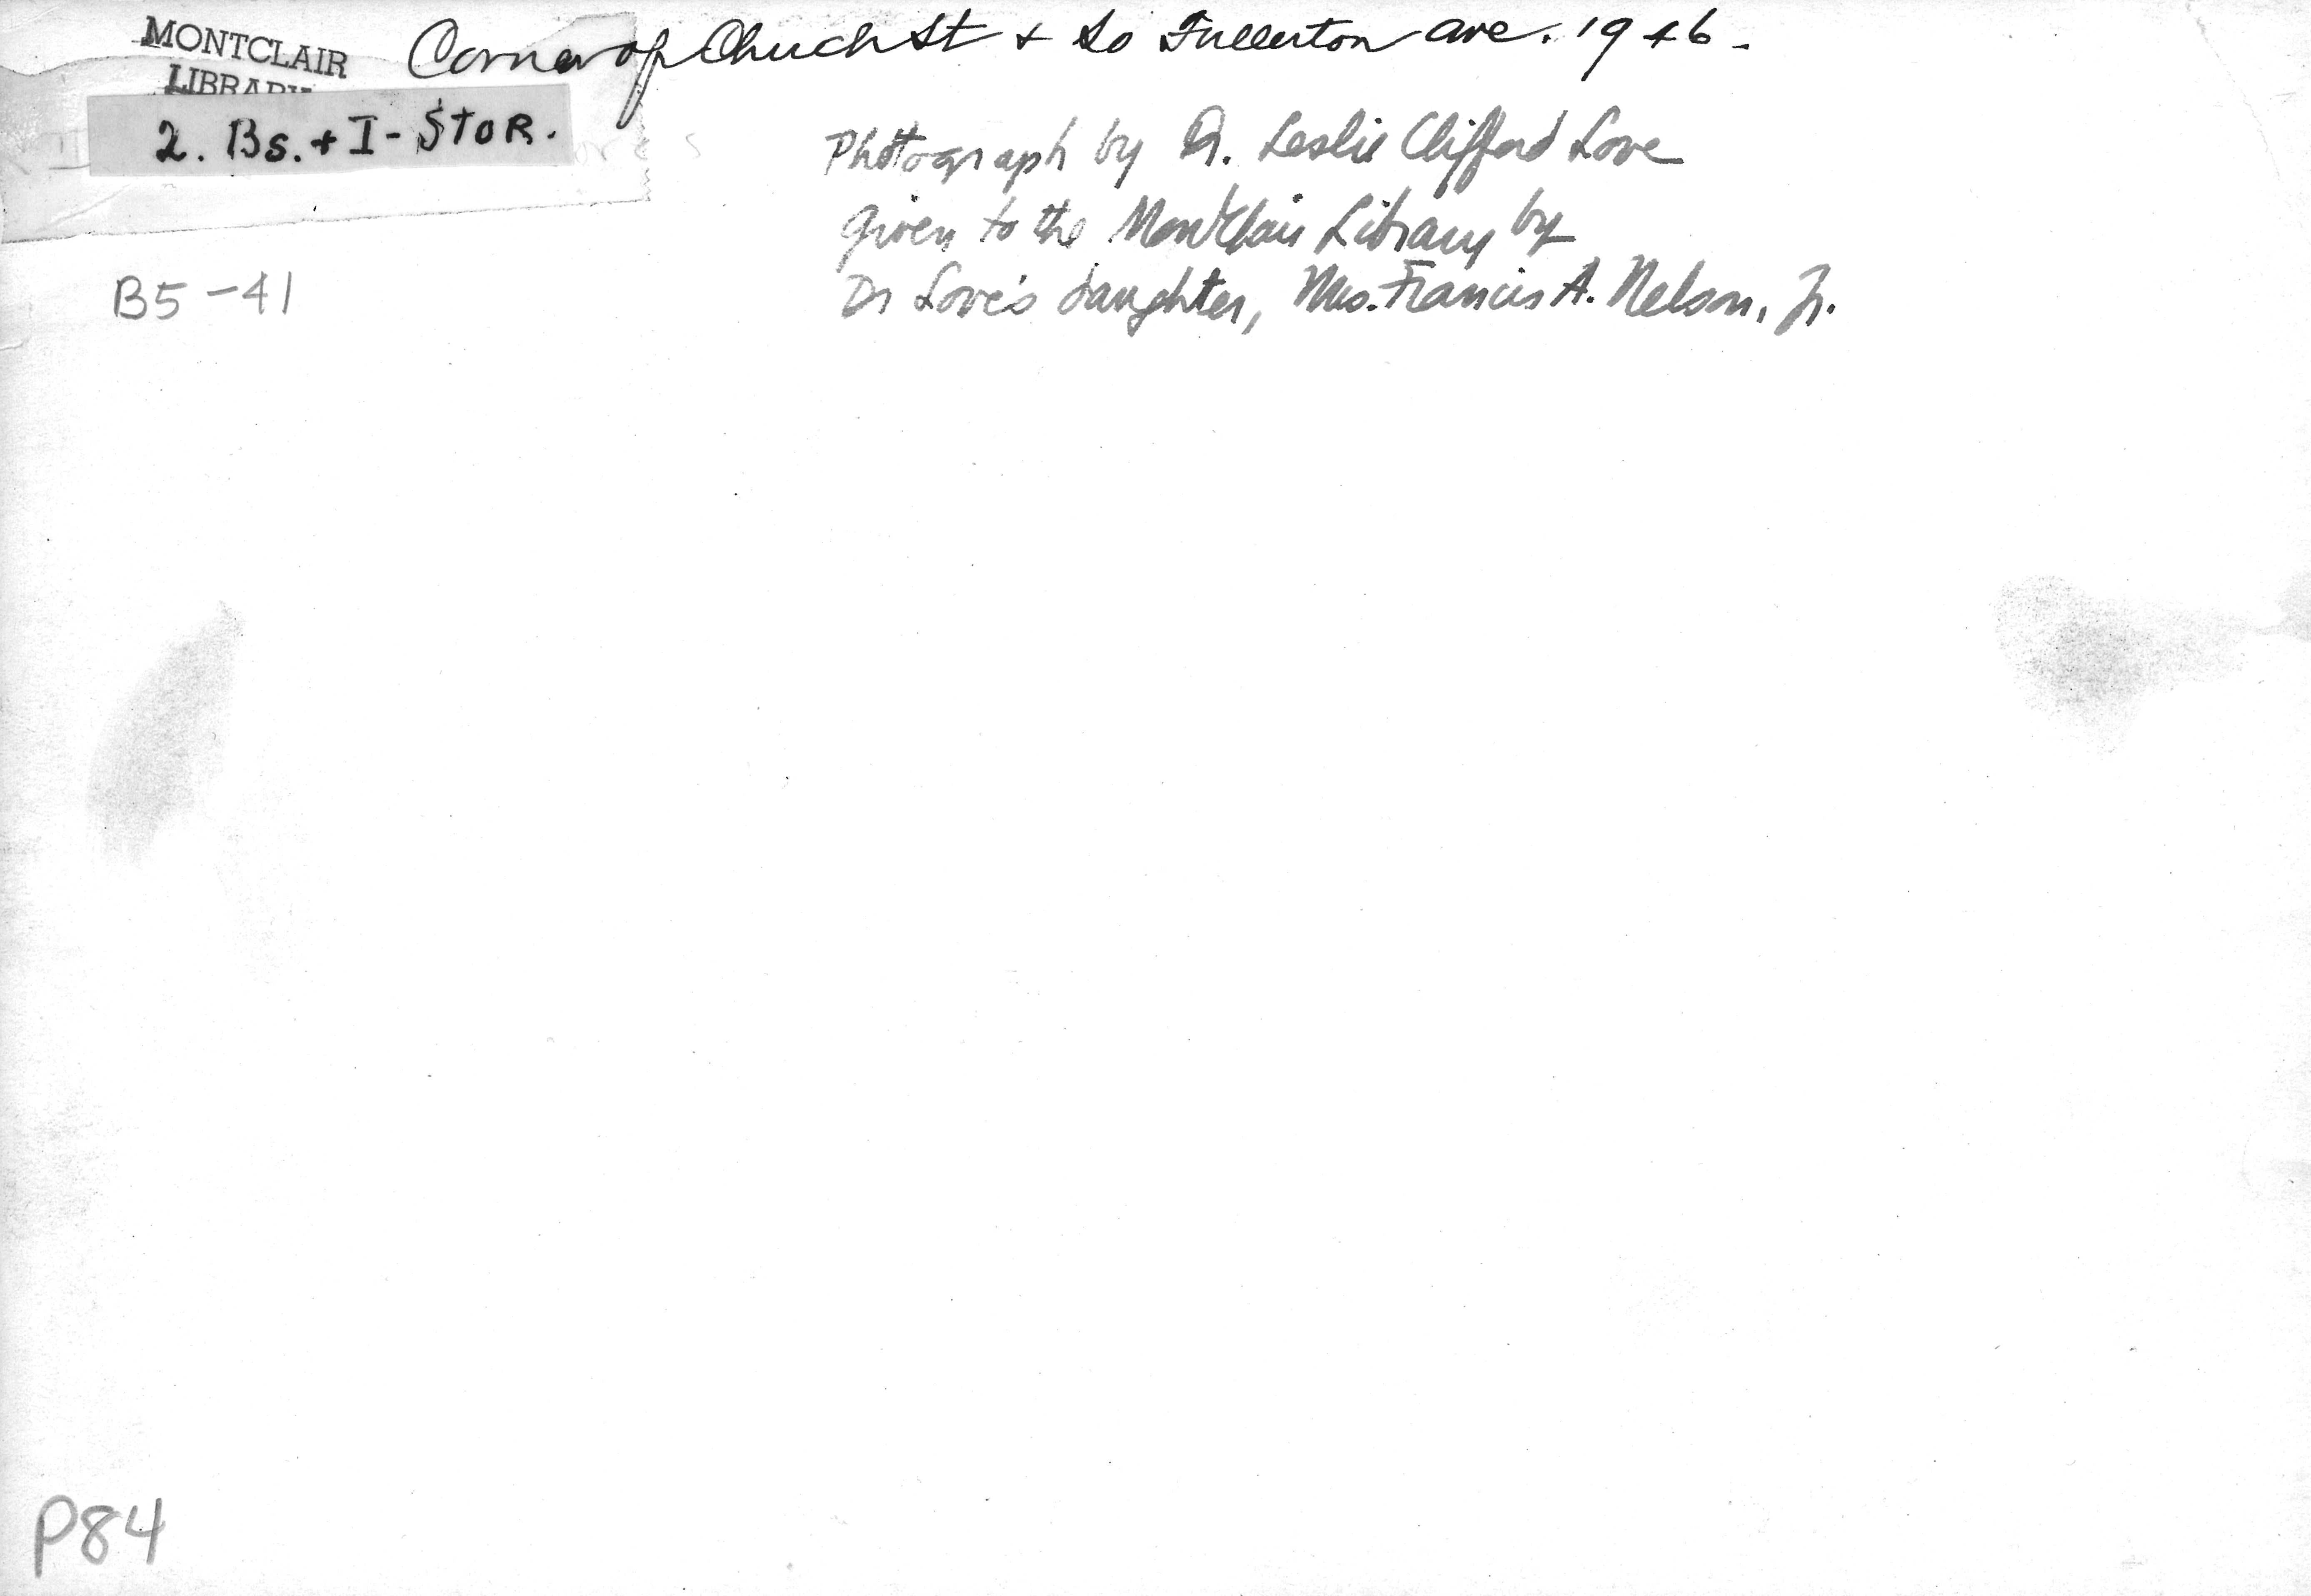 MONTCLAIR
LIBRARY
Corner of Church St + So Fullerton ave. 1946-
2. Bs. + I - STOR.
Photograph by Dr. Leslie Clifford Love
given to the Montclair Library by
Dr Love's daughter, Mrs. Francis A. Nelson, Jr.
B5-41
P84